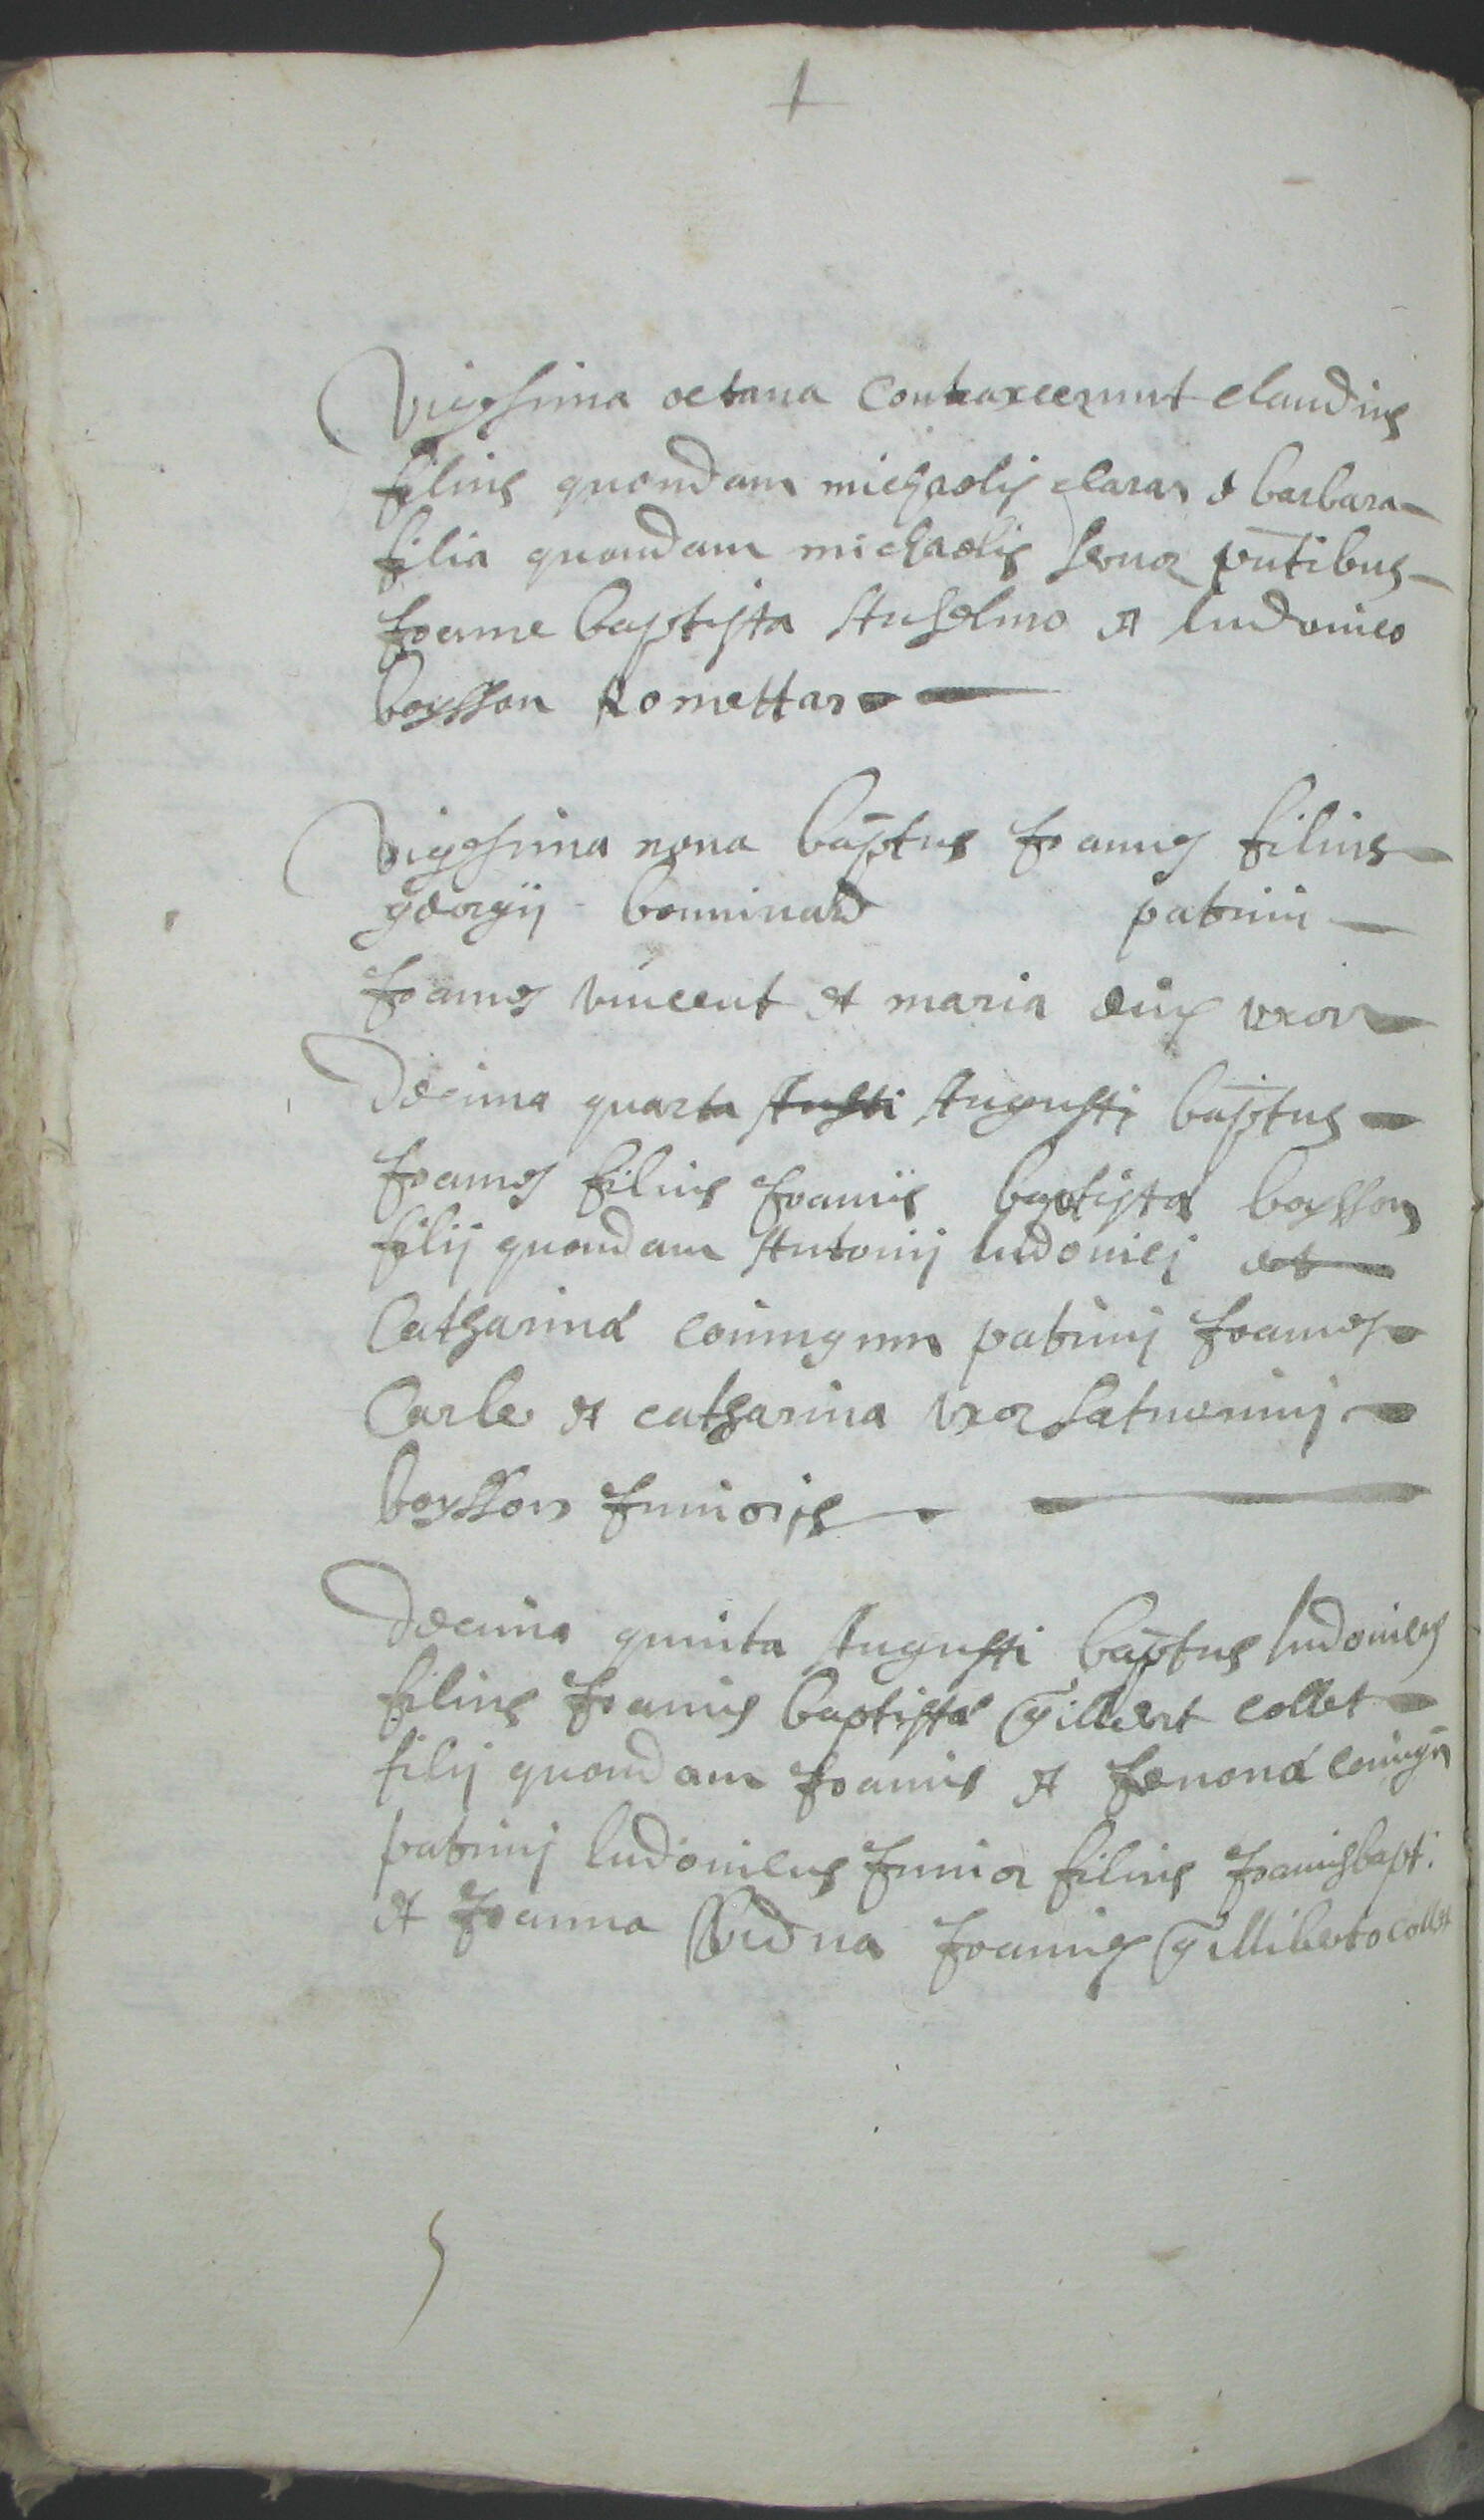 Vigesima octava Contraxerunt claudius
filius quondam michaelis claras & barbara
filia quondam michaelis pntibus
Joanne baptista Anselmo et ludovico
boysson Romettas
Vigesima nona baptus Joannes filius
georgij bonninard patrini
Joannes vincent et maria eius uxor
Decima quarta Augusti baptus
Joannes filius Joannis baptistæ boysson
filij quondam Antonij ludovici et
Catharinæ coniugum patrinj Joannes
Carle et catharina uxor Saturninj
boysson Junioris
Decima quinta Augusti baptus ludovicus
filius Joannis baptistæ gilibert collet
filij quondam Joannis et Jenonæ coniugu
patrinj ludovicus Junior filius Joannisbapt.
et Joanna Vidua Joannis gilliberto collet